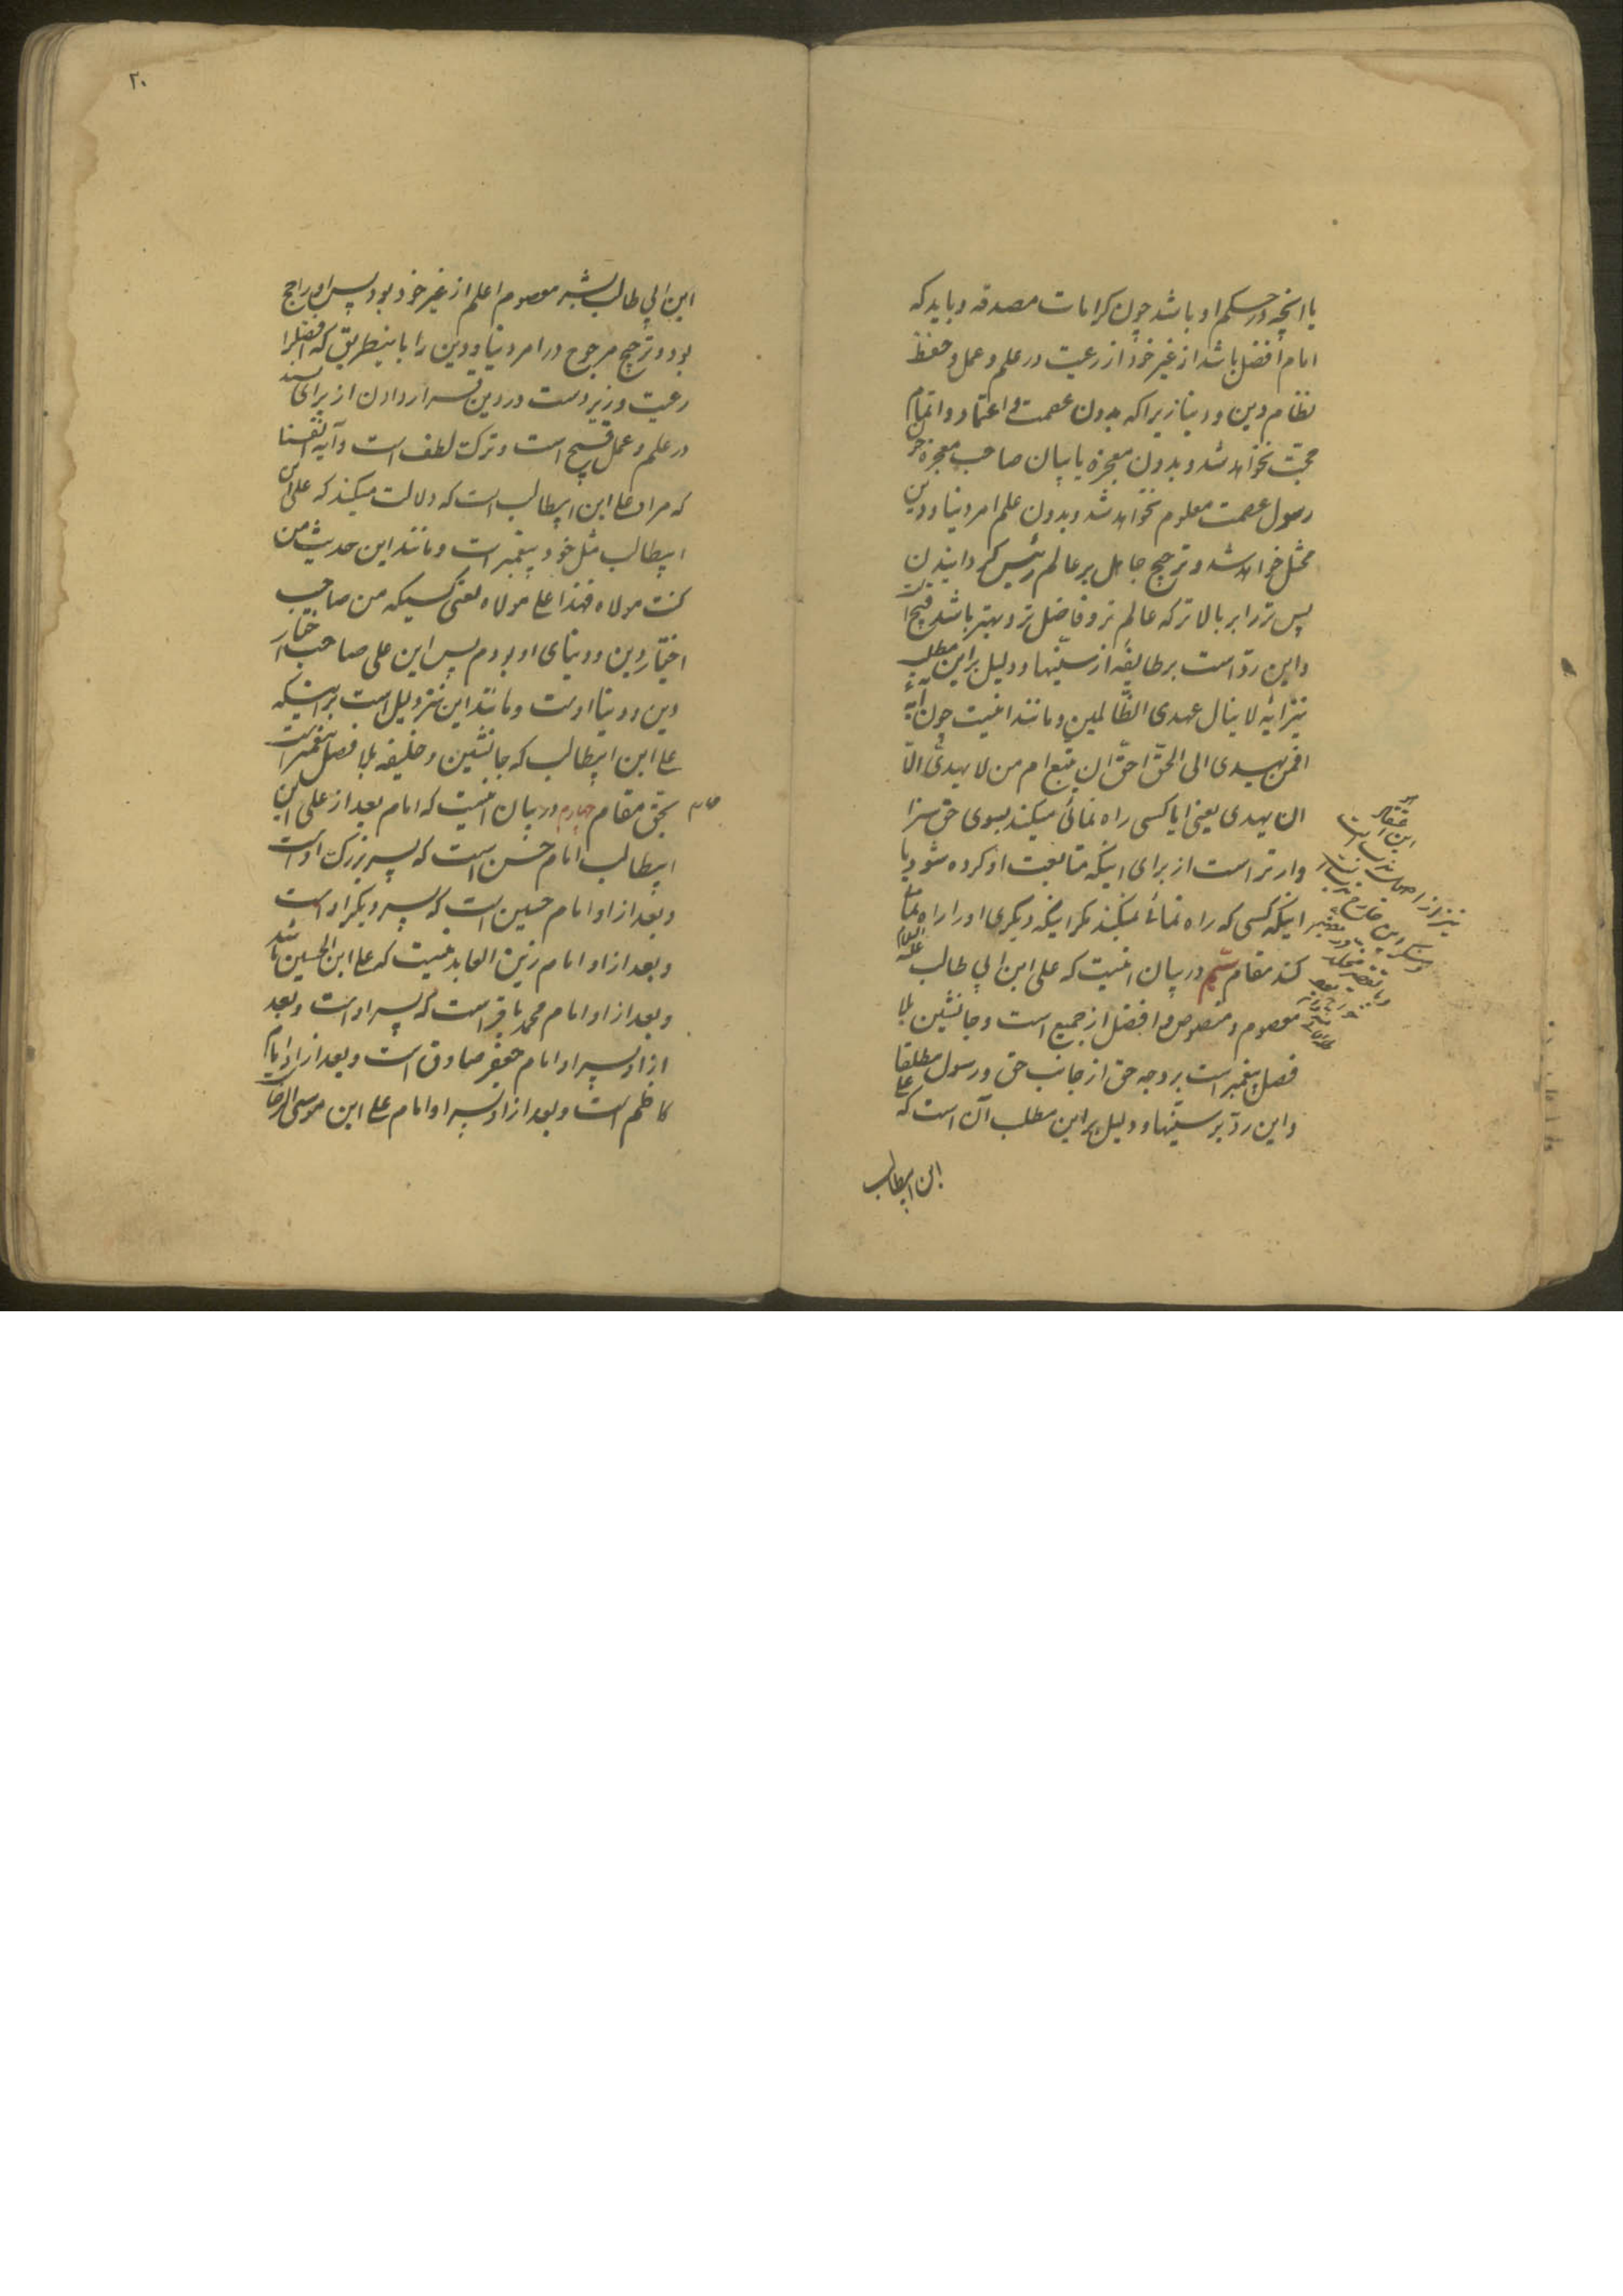 یا انچه در حکم او باشد چون کرامات مصدقه و باید که
امام افضل باشد از غیر خود از رعیت در علم و عمل و حفظ
نظام دین و دنیا زیرا که بدون عصمت و اعتماد و اتمام
حجت نخواهد شد و بدون معجزه یا بیان صاحب معجزه چون
رسول عصمت معلوم نخواهد شد و بدون علم امر دنیا و دین
مختل خواهد شد و ترجیح جاهل بر عالم و رئیس کردانیدن
پس تر را بر بالاتر که عالم تر و فاضل تر و بهتر باشد قبیح است
و این ردّ است بر طایفه از سنّیها و دلیل بر این مطلب
نیز آیه لا ینال عهدی الظّالمین و مانند انیست چون آیهٔ
افمن یهدی الی الحقّ احقّ ان یتّبع ام من لا یهدّی الّا
ان یهدی یعنی ایا کسی راه نمائی میکند بسوی حق سزا
وارتر است از برای اینکه متابعت او کرده شود یا
اینکه کسی که راه نمائی نمیکند مکر اینکه دیکری او را راه نمائی
کند مقام سیّم در بیان انیست که علی ابن ابی طالب علیه السلام
معصوم و منصوص و افضل از جمیع است و جانشین بلا
فصل پیغمبر است بر وجه حق از جانب حق و رسول مطلقا
و این ردّ بر سنّیها و دلیل بر این مطلب آن است که علی
ابن ابیطالب
این
نیز از اصول
۲۰
ابن ابی طالب بشبه معصوم اعلم از غیر خود بود پس او راجح
بود و ترجیح مرجوح در امر دنیا و دین را باینطریق که افضلرا
رعیت و زیردست در دین قرار دادن از برای
در علم و عمل قبیح است و ترک لطف است و آیه انفسنا
که مراد علی ابن ابیطالب است که دلالت میکند که علی ابن
ابیطالب مثل خود پیغمبر است و مانند این حدیث من
کنت مولاه فهذا علی مولاه یعنی کسیکه من صاحب
اختیار دین و دنیای او بودم پس این علی صاحب اختیار
دین و دنیا اوست و مانند این نیز دلیل است بر اینکه
علی ابن ابیطالب که جانشین و خلیفه بلا فصل پیغمبر است
بحق مقام چهارم در بیان انیست که امام بعد از علی ابن
ابیطالب امام حسن است که پسر بزرک او است
و بعد از او امام حسین است که پسر دیکر او است
و بعد از او امام زین العابدینیست که علی ابن الحسین باشد
و بعد از او امام محمد باقر است که پسر او است و بعد
از او پسر او امام جعفر صادق است و بعد از او امام
کاظم است و بعد از او پسر او امام علی ابن موسی الرضا